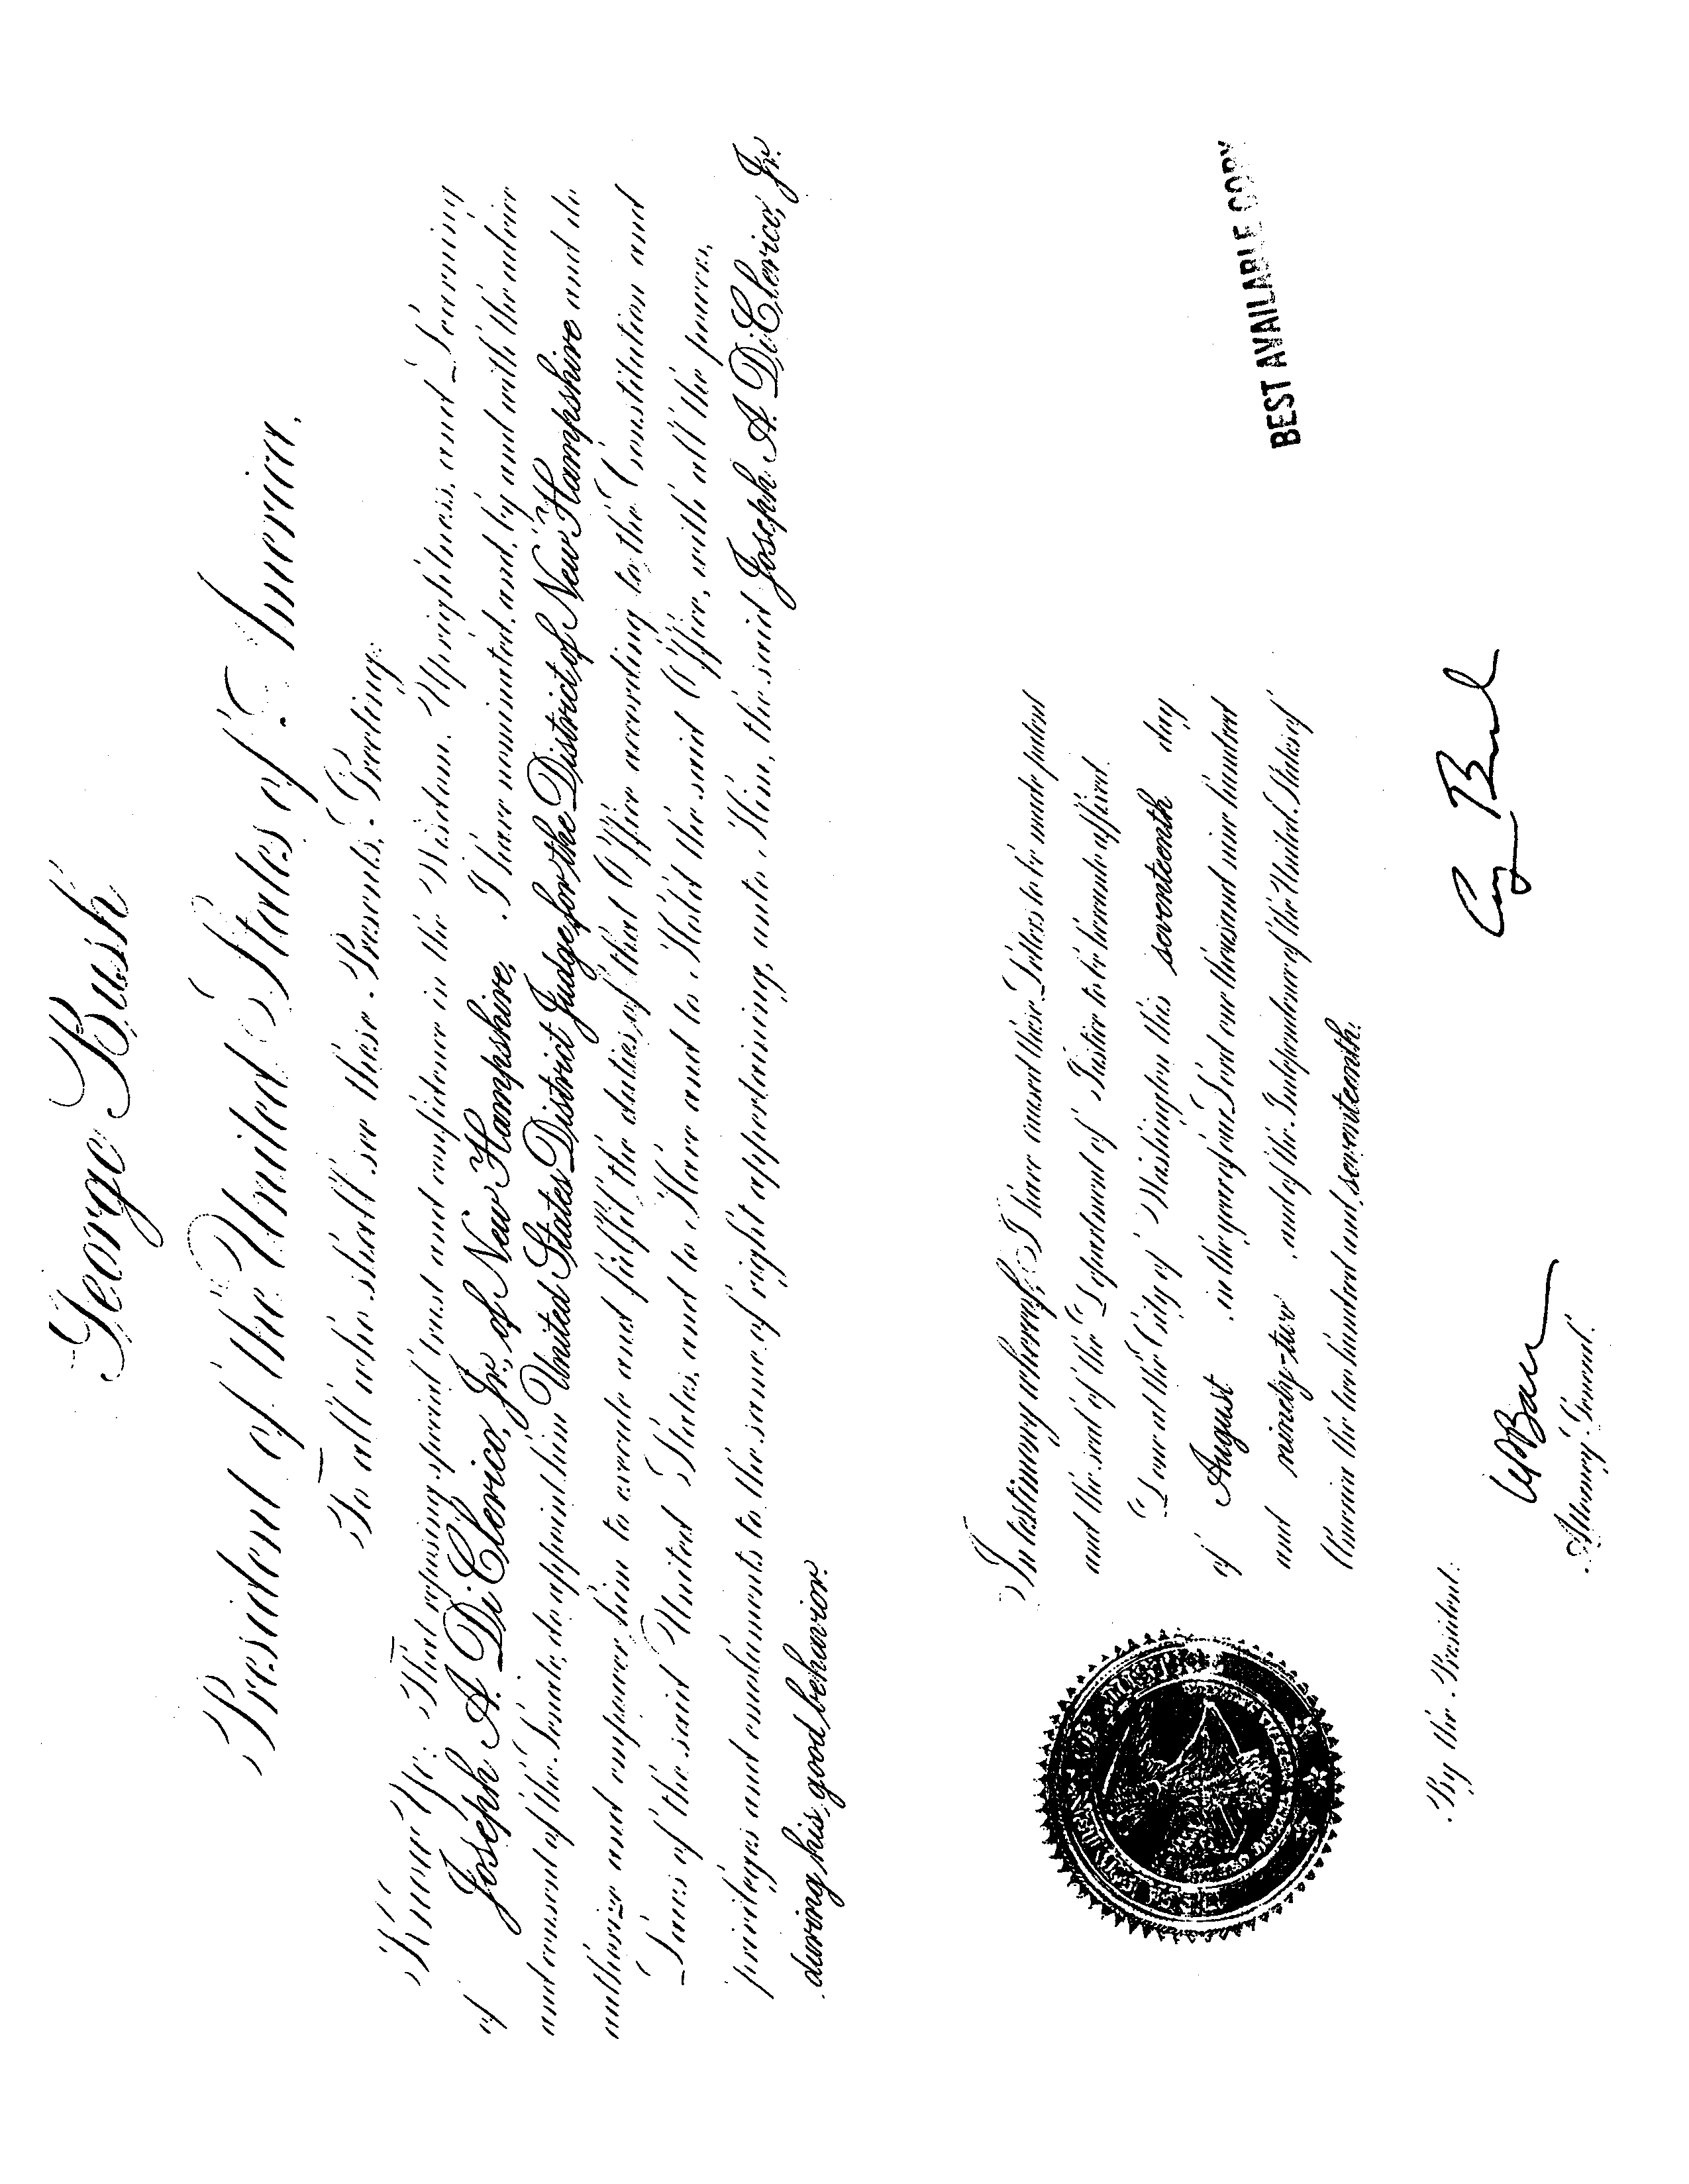 George Bush
President of the United States of America,
To all who shall see these Presents, Greeting:
Know Ye: That reposing special trust and confidence in the Wisdom, Uprightness, and Learning
of Joseph A. DiClerico, Jr., of New Hampshire, I have nominated, and, by and with the advice
and consent of the Senate, do appoint him United States District Judge for the District of New Hampshire and do
authorize and empower him to execute and fulfil the duties of that Office according to the Constitution and
Laws of the said United States, and to Have and to Hold the said Office, with all the powers,
privileges and emoluments to the same of right appertaining, unto Him, the said Joseph A. DiClerico, Jr.
during his good behavior.
In testimony whereof, I have caused these Letters to be made patent
and the seal of the Department of Justice to be hereunto affixed.
Done at the City of Washington this seventeenth day
of August in the year of our Lord one thousand nine hundred
and ninety-two, and of the Independence of the United States of
America the two hundred and seventeenth.
BEST AVAILABLE COPY
By the President:
Attorney General.